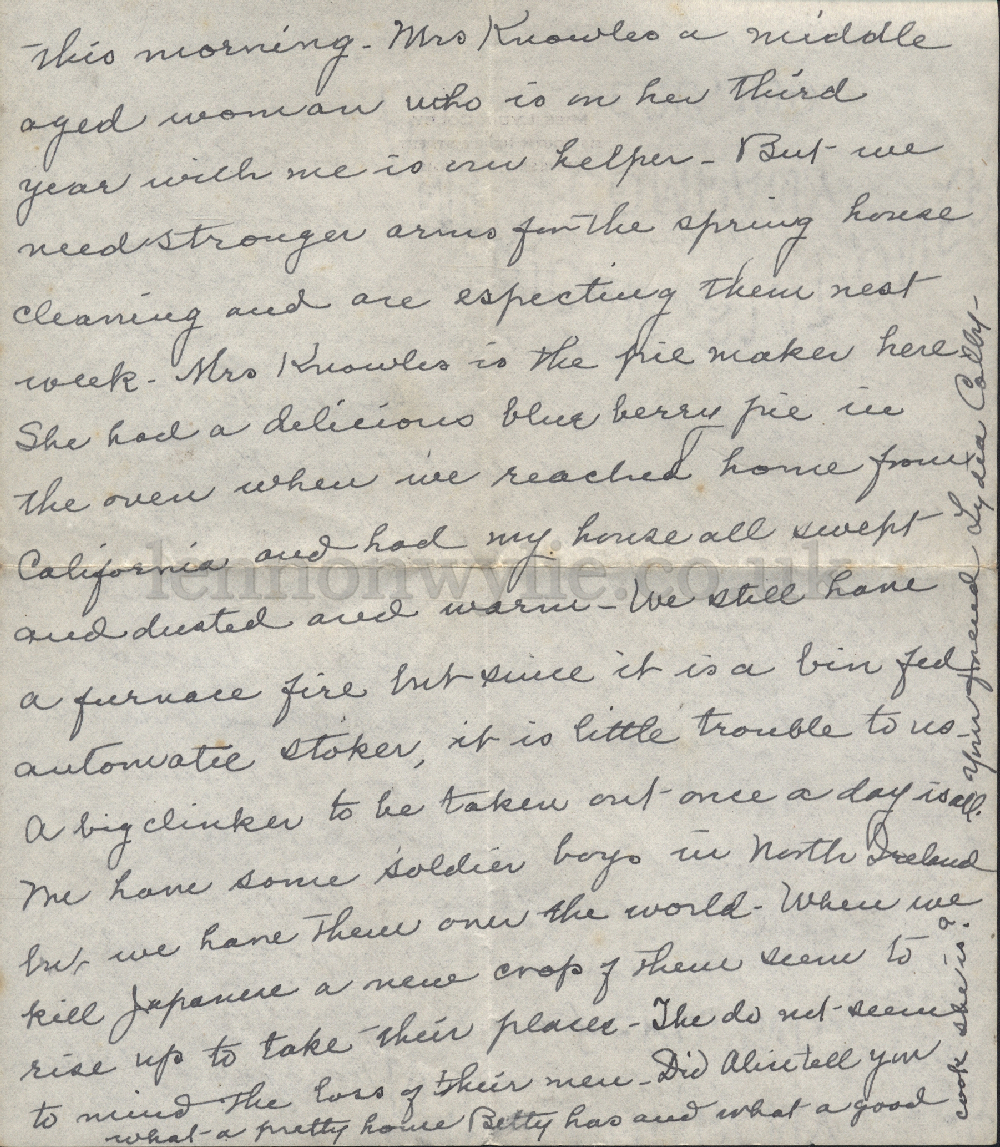 this morning - Mrs Knowles a middle
aged woman who is on her third
year with me is our helper - But we
need stronger arms for the spring house
cleaning and are especting them nest
week - Mrs Knowles is the pie maker here
She had a delicious blue berry pie in
the oven when we reached home from
California and had my house all swept
and dusted and warm - We still have
a furnace fire but since it is a bin fed
automatic stoker, it is little trouble to us -
A big clinker to be taken out once a day is all.
We have some soldier boys in North Ireland
but we have them over the world - When we
kill Japanese a new crop of them seem to
rise up to take their places - The do not seem
to mind the loss of their men - Did Alice tell you
what a pretty home Betty has and what a good
cook she is?
Your friend Lydia Colby -
lennonwylie.co.uk